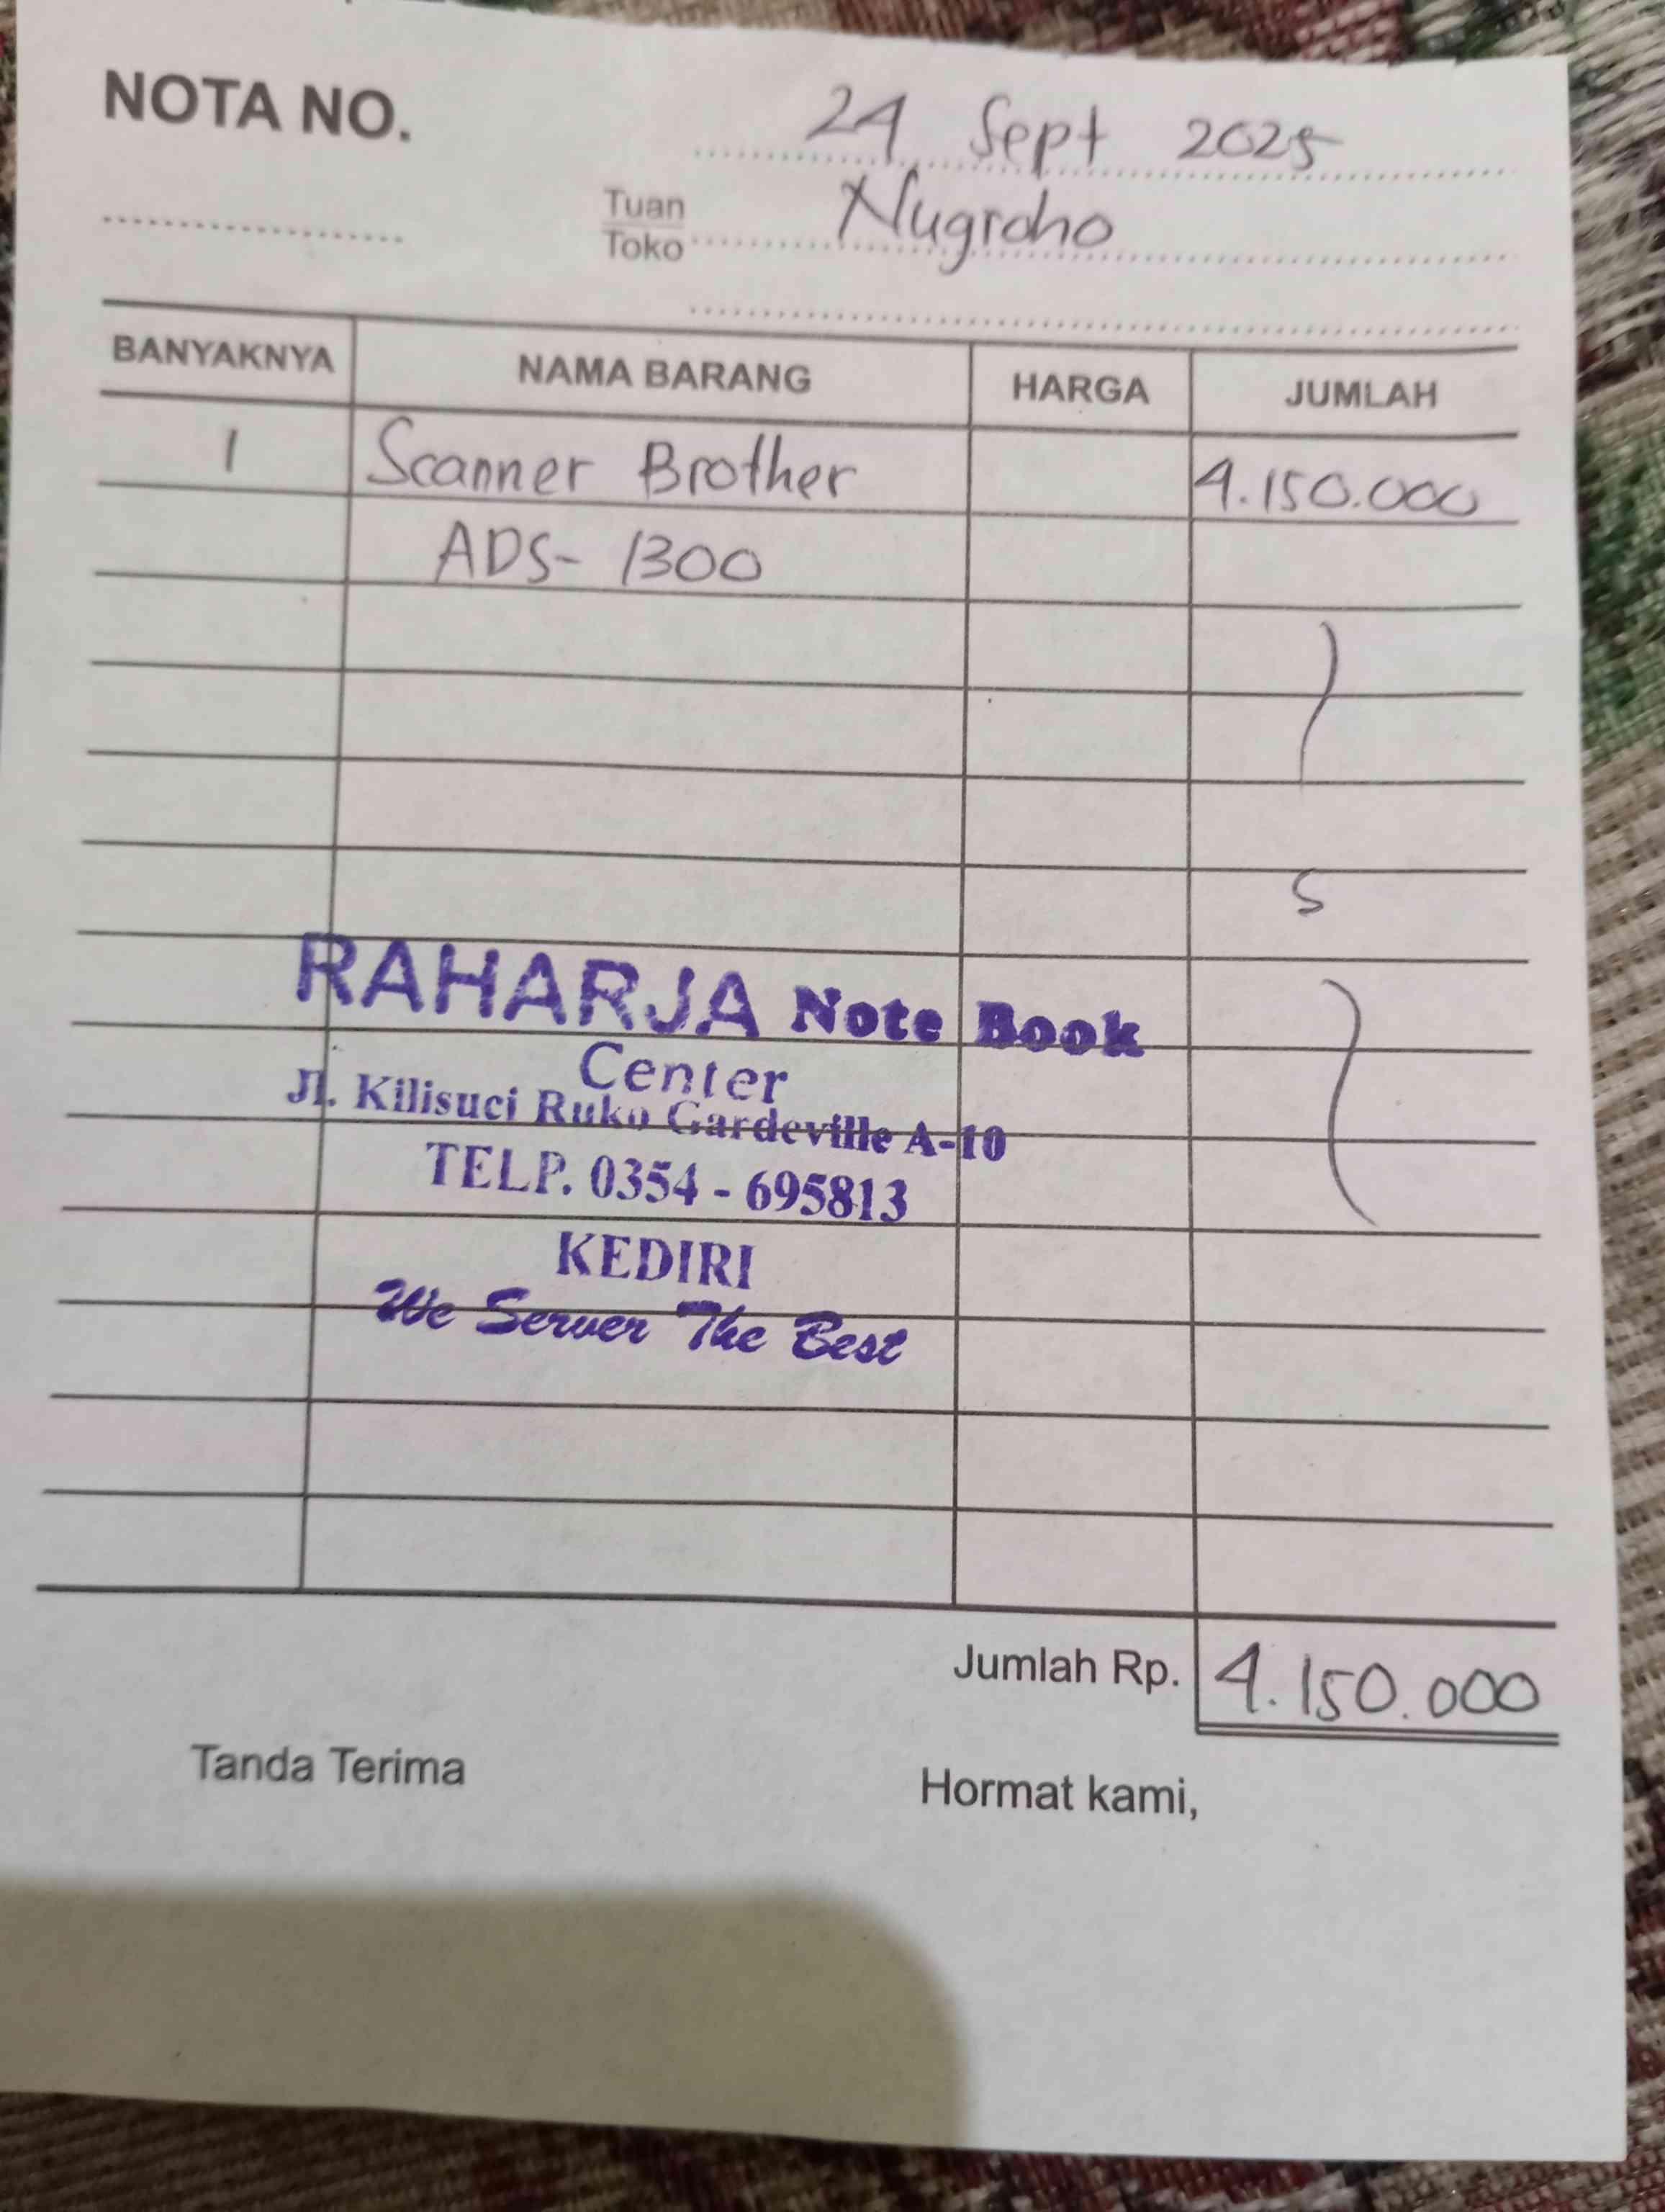 NOTA NO.
24 Sept 2025
Tuan
Toko
Nugroho
BANYAKNYA NAMA BARANG HARGA JUMLAH
1 Scanner Brother 4.150.000
ADS- 1300
RAHARJA Note Book
Center
Jl. Kilisuci Ruko Gardeville A-10
TELP. 0354 - 695813
KEDIRI
We Server The Best
Jumlah Rp. 4.150.000
Tanda Terima Hormat kami,